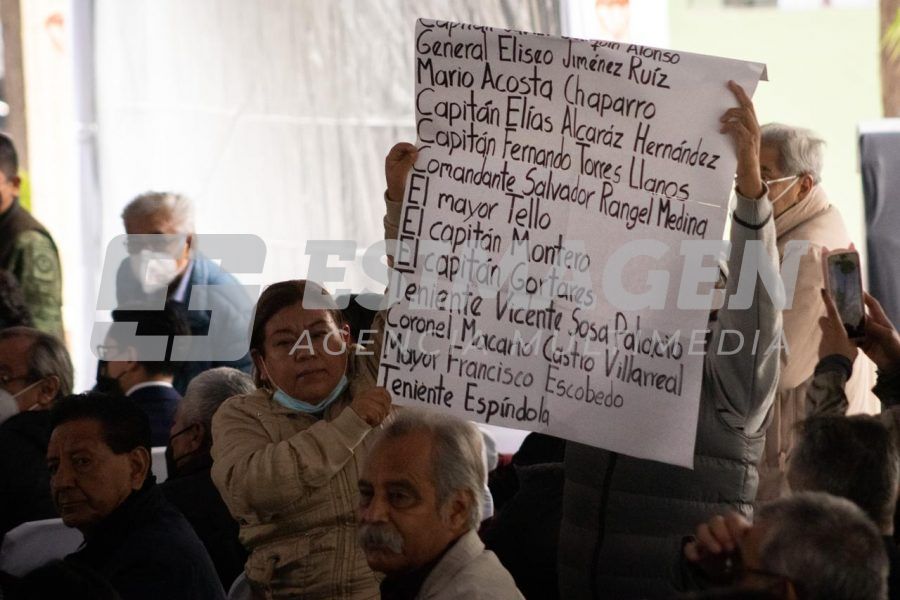 Alonso
General Eliseo Jiménez Ruíz
Mario Acosta Chaparro
Capitán Elías Alcaráz Hernández
Capitán Fernando Torres Llanos
Comandante Salvador Rangel Medina
El mayor Tello
El capitán Montero
El capitán Gortares
Teniente Vicente Sosa Palacio
Coronel Macario Castro Villarreal
Mayor Francisco Escobedo
Teniente Espíndola
ESIMAGEN
AGENCIA MULTIMEDIA